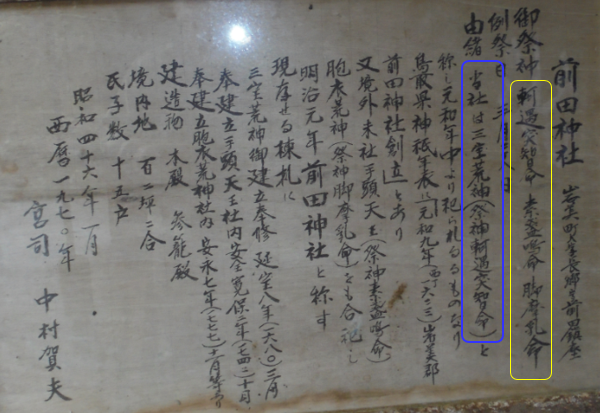 前田神社 岩美町大字長郷字前田鎮座
御祭神 軻遇突智命 素盞嗚命 脚摩乳命
例祭日 三月廿八日
由緒 当社は三宝荒神(祭神軻遇突智命)と
称し元和年中より祀られたるものなり
鳥取県神祇年表に元和九年(西一六二三)岩美郡
前田神社創立とあり
又境外末社手頭天王(祭神素盞嗚命)
胞衣荒神(祭神脚摩乳命)とも合祀し
明治元年前田神社と称す
現存せる棟札に
三宝荒神御建立奉修 延宝八年(一六八〇)三月
奉建立手頭天王社内安全 寛保二年(一七四二)十月
奉建立胞衣荒神社内 安永七年(一七七七)十一月等あり
建造物 本殿 参籠殿
境内地 百二坪二合
氏子数 十五戸
昭和四十六年一月
西暦一九七〇年
宮司 中村賀夫